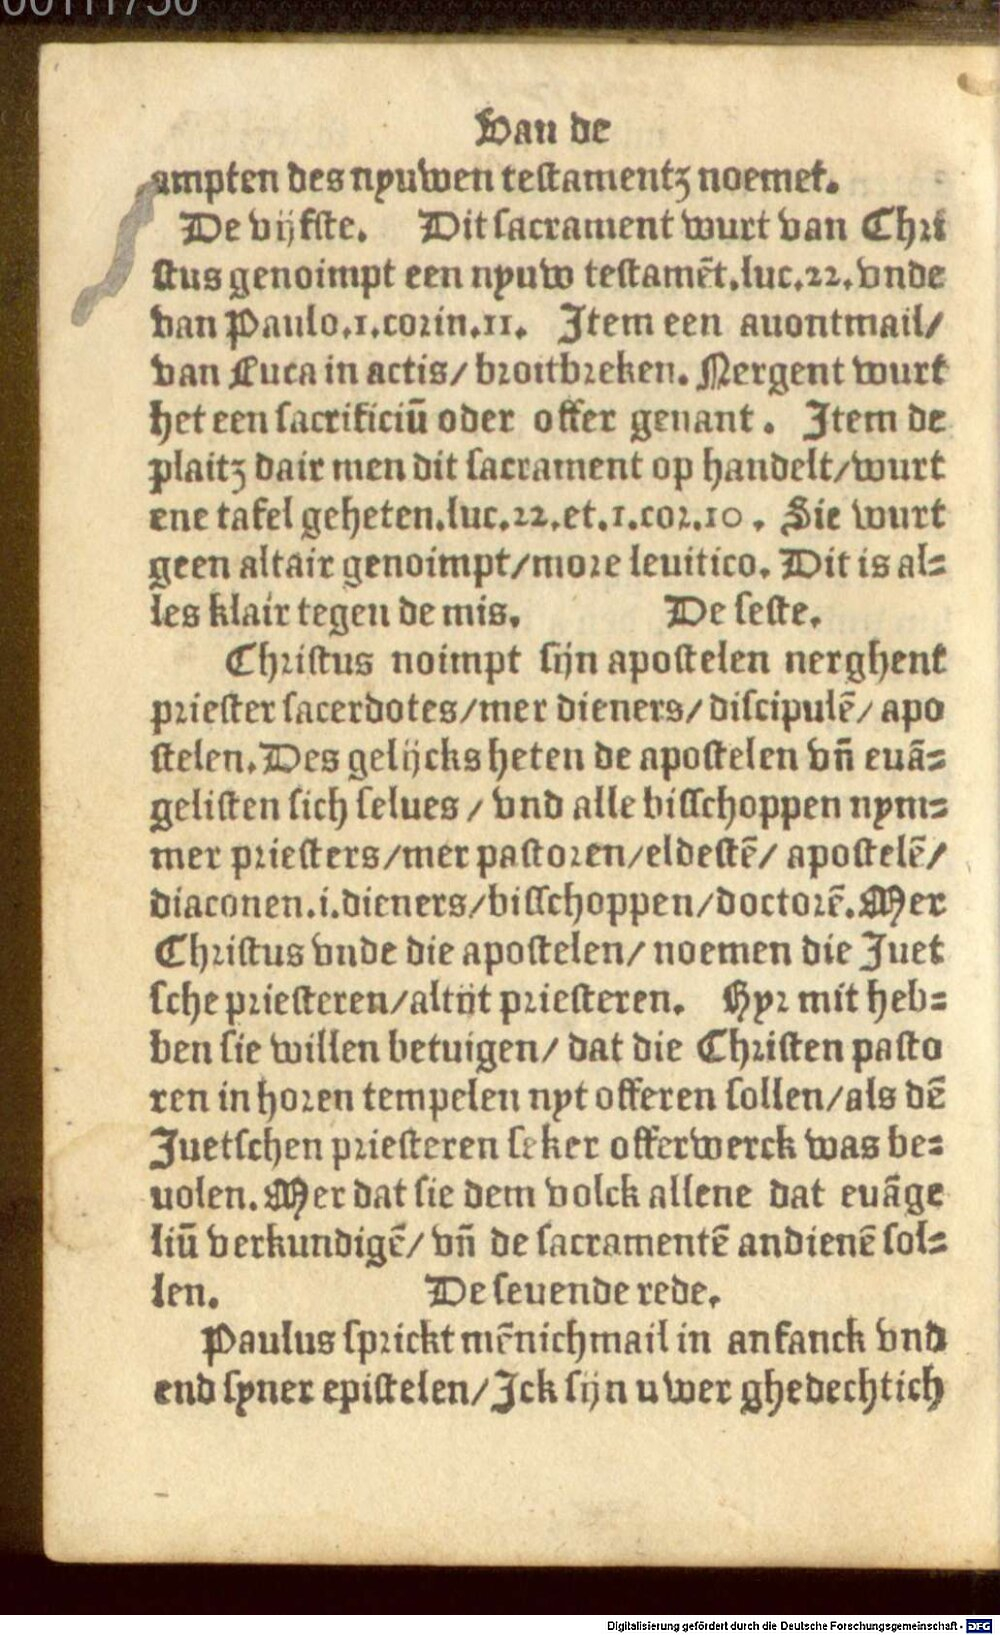 Van de
ampten des nyuwen testamentz noemet.
De vijfste. Dit sacrament wurt van Chri
stus genoimpt een nyuw testamēt.luc.22.vnde
van Paulo.1.corin.11. Item een auontmail/
van Luca in actis/broitbreken. Nergent wurt
het een sacrificiū oder offer genant. Item de
plaitz dair men dit sacrament op handelt/wurt
ene tafel geheten.luc.22.et.1.cor.10. Sie wurt
geen altair genoimpt/more leuitico. Dit is al=
les klair tegen de mis. De seste.
Christus noimpt sijn apostelen nerghent
priester sacerdotes/mer dieners/discipulē/apo
stelen. Des gelijcks heten de apostelen vn̄ euā=
gelisten sich selues/vnd alle bisschoppen nym=
mer priesters/mer pastoren/eldestē/apostelē/
diaconen.i.dieners/bisschoppen/doctorē. Mer
Christus vnde die apostelen/noemen die Juet
sche priesteren/altijt priesteren. Hyr mit heb=
ben sie willen betuigen/dat die Christen pasto
ren in horen tempelen nyt offeren sollen/als dē
Juetschen priesteren seker offerwerck was be=
uolen. Mer dat sie dem volck allene dat euāge
liū verkundigē/vn̄ de sacramentē andienē sol=
len. De seuende rede.
Paulus sprickt mēnichmail in anfanck vnd
end syner epistelen/Ick sijn uwer ghedechtich
Digitalisierung gefördert durch die Deutsche Forschungsgemeinschaft - DFG